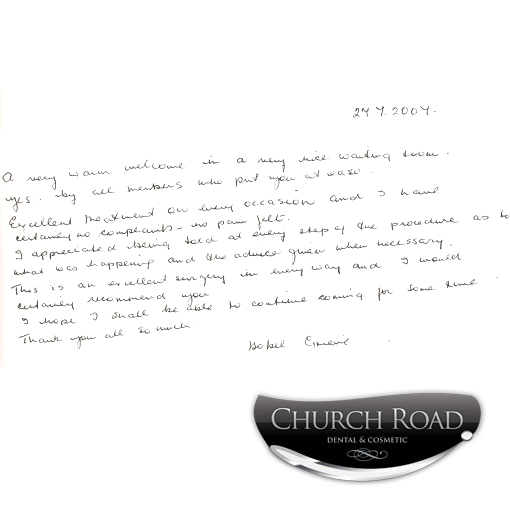 27.7.2007.
A very warm welcome in a very nice waiting room.
yes. by all members who put you at ease.
Excellent treatment on every occasion and I have
certainly no complaints - no pain felt.
I appreciated being told at every step of the procedure as to
what was happening and the advice given when necessary.
This is an excellent surgery in every way and I would
certainly recommend you
I hope I shall be able to continue coming for some time.
Thank you all so much
CHURCH ROAD
DENTAL & COSMETIC